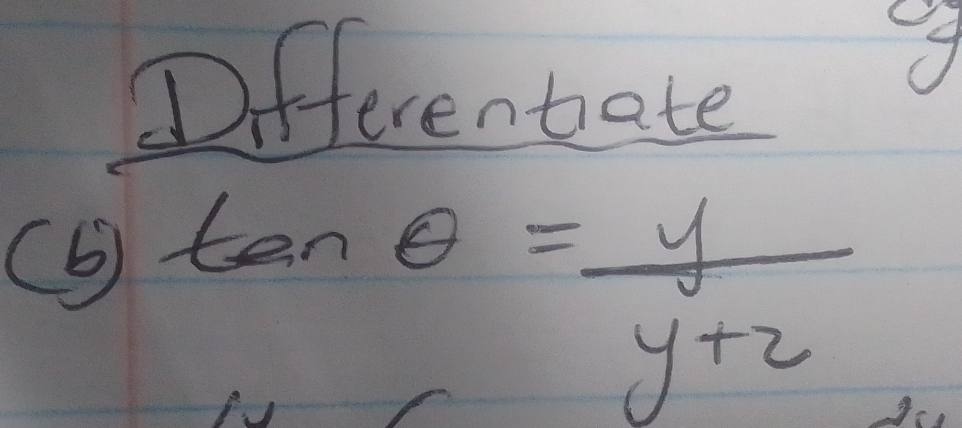 Differentiate
(b) tan θ = y
y+2